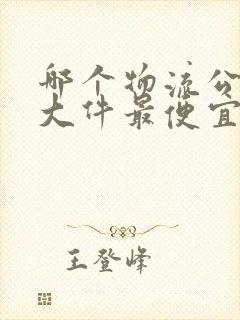 哪个物流公
大件最便宜
王登峰